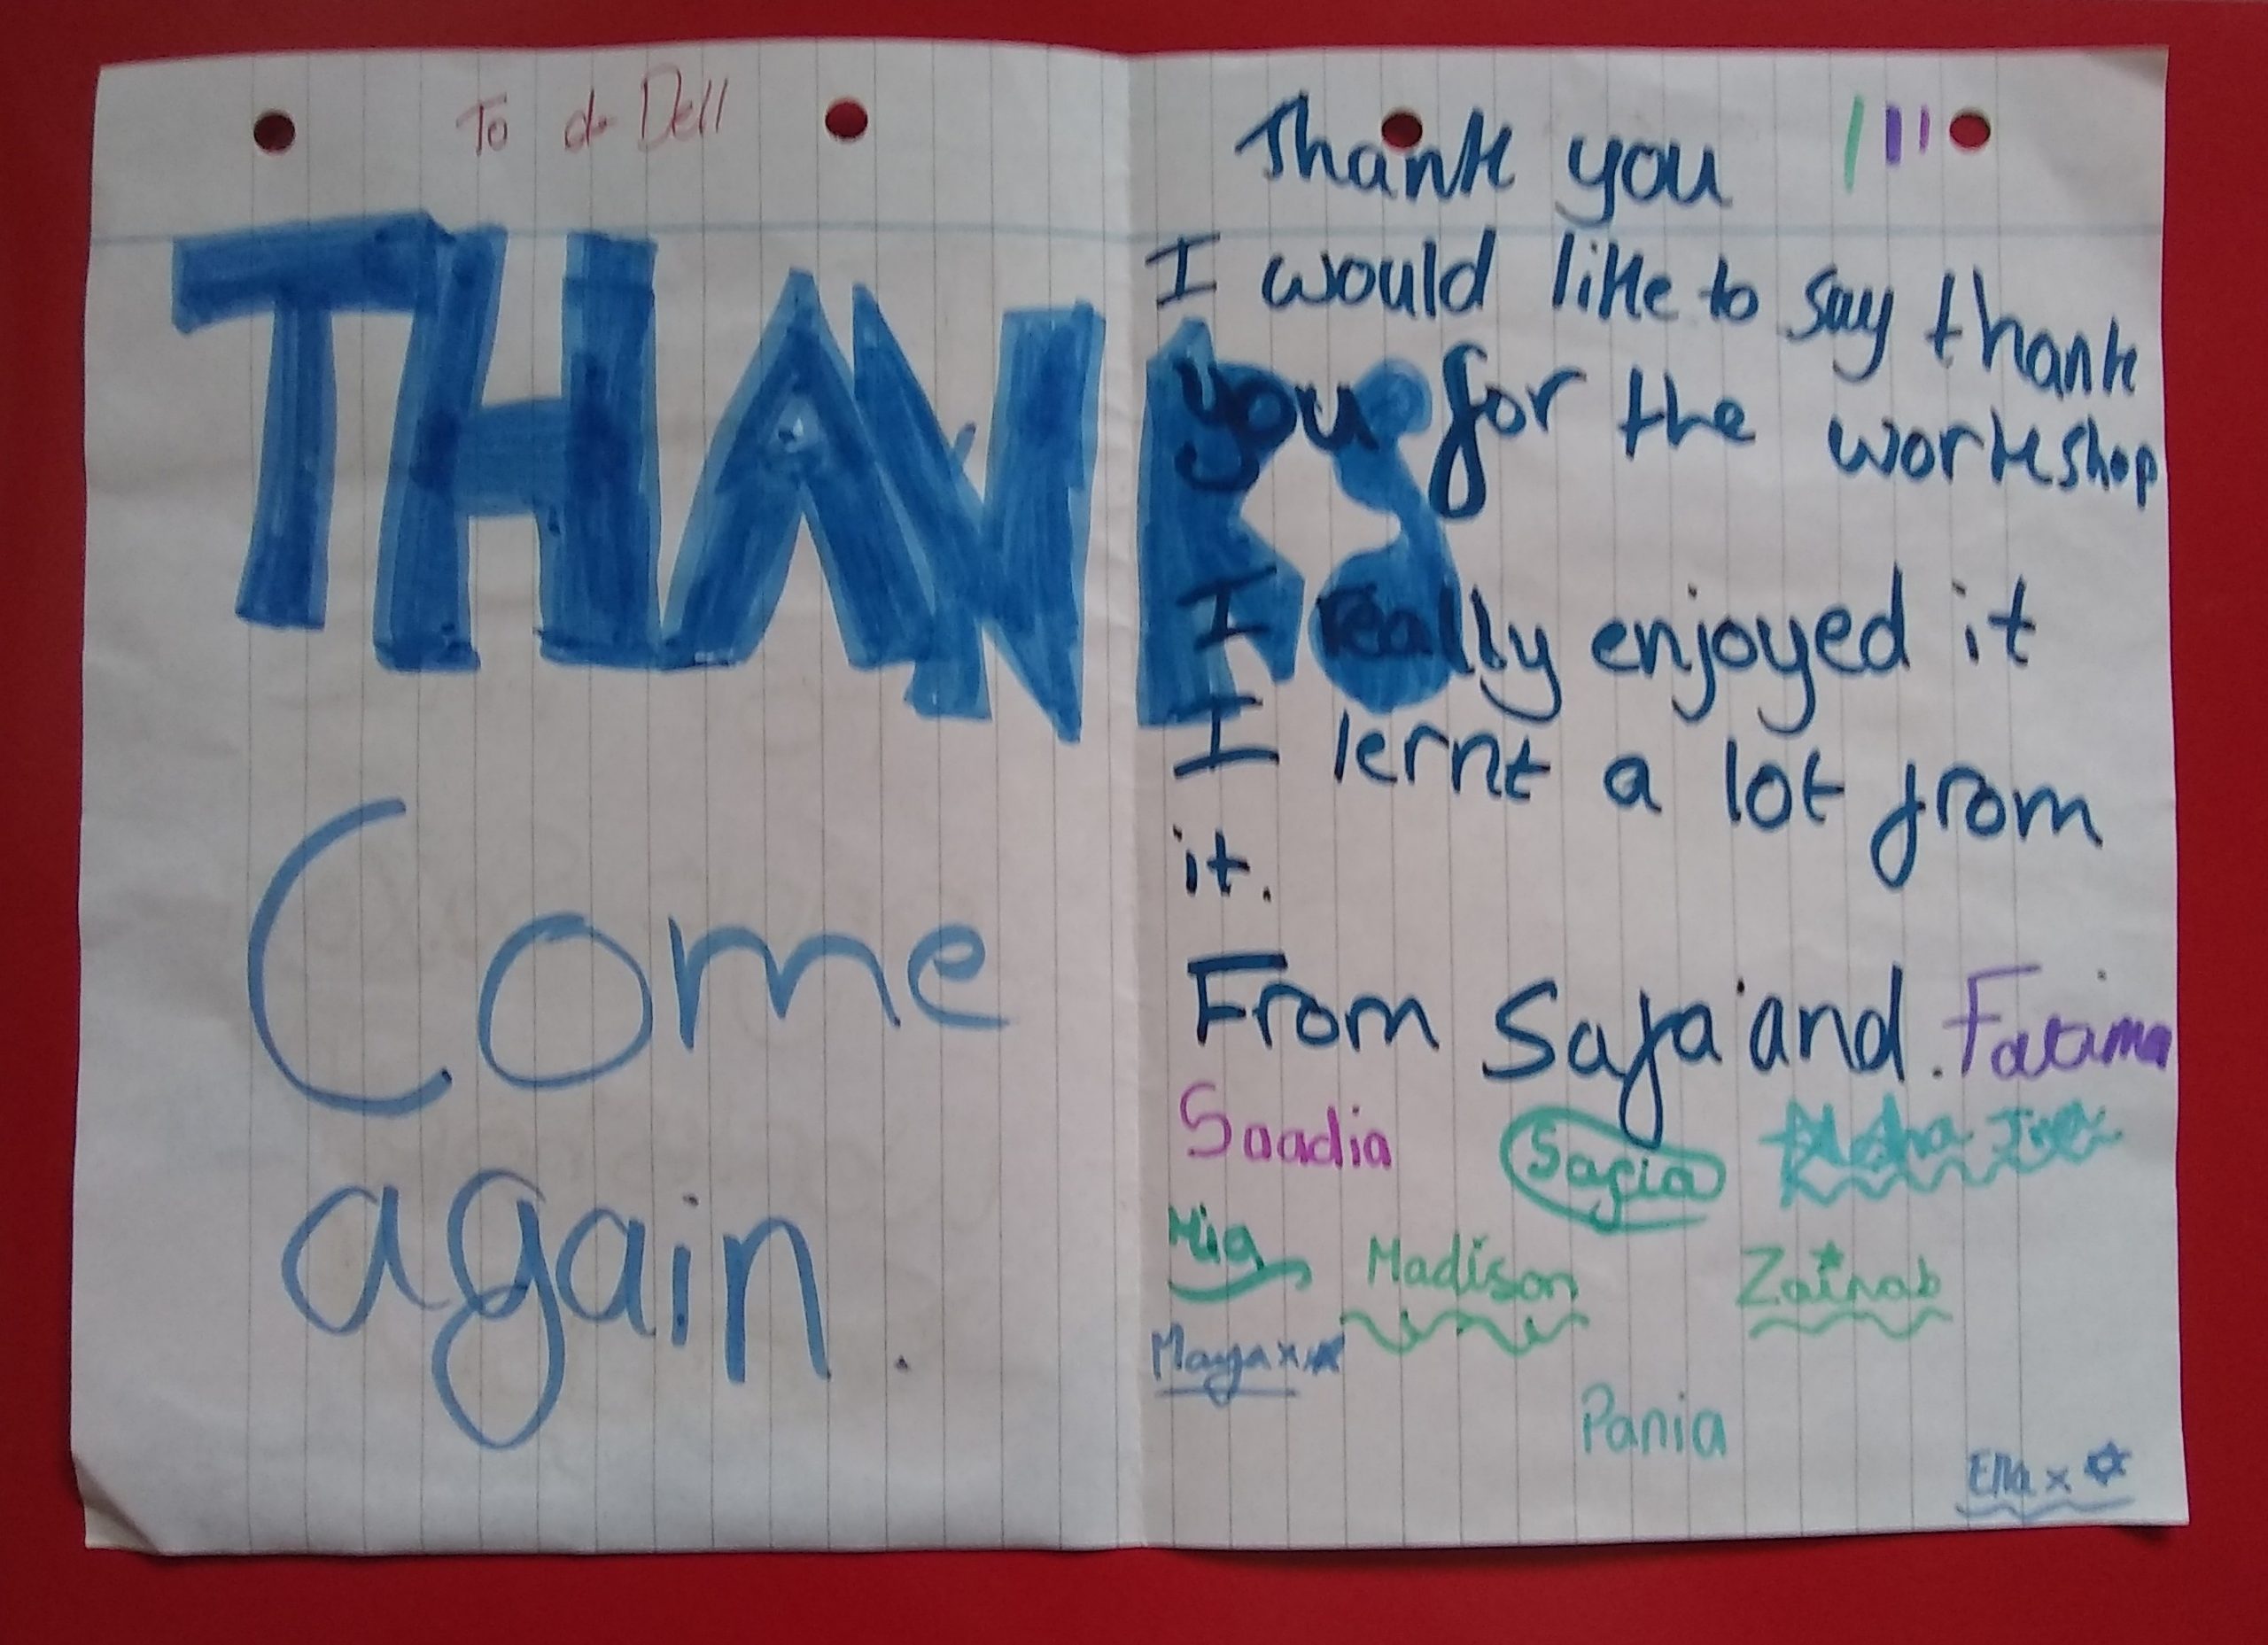 To de Dell
THANKS
Come
again.
Thank you
I would like to say thank
you for the workshop
I really enjoyed it
I lernt a lot from
it.
From Safa and. Fatima
Saadia Safia
Mia Madison Zainab
Maya x
Pania
Ella x